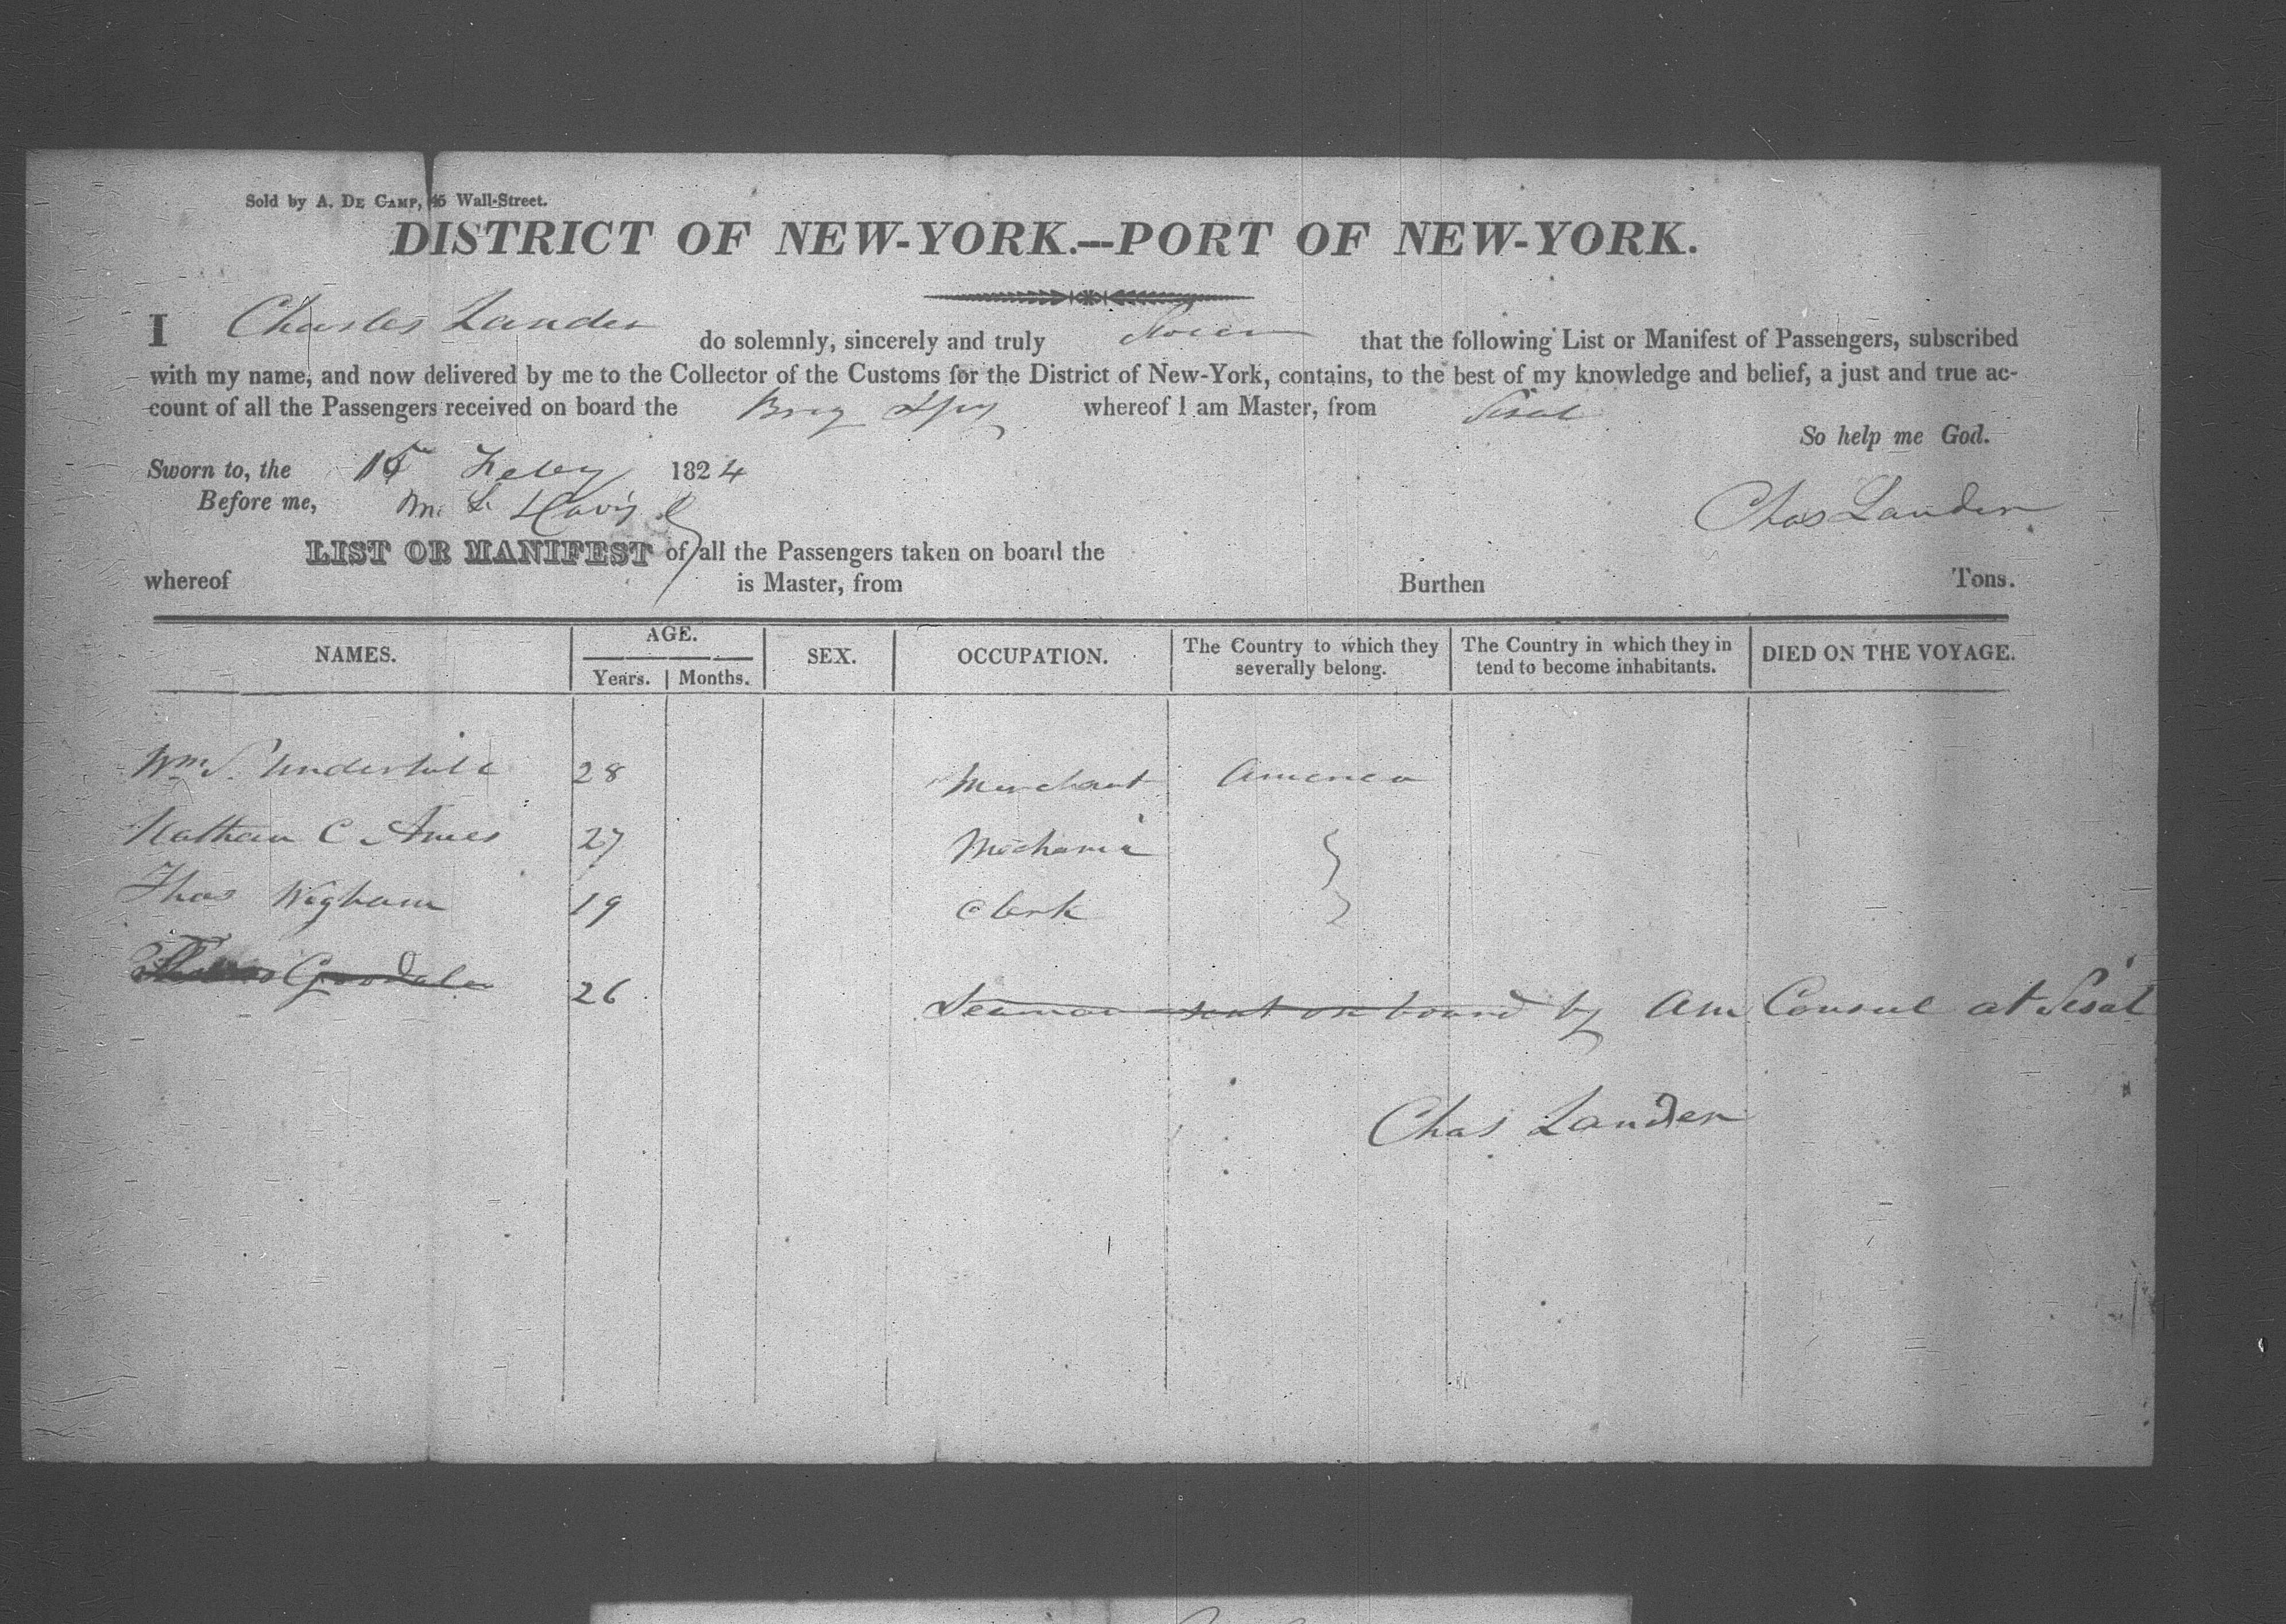 Sold by A. DE CAMP, 45 Wall-Street.
DISTRICT OF NEW-YORK.—PORT OF NEW-YORK.
I Charles Lander do solemnly, sincerely and truly Swear that the following List or Manifest of Passengers, subscribed
with my name, and now delivered by me to the Collector of the Customs for the District of New-York, contains, to the best of my knowledge and belief, a just and true ac-
count of all the Passengers received on board the Brig Spy whereof I am Master, from Sisal
So help me God.
Sworn to, the 15 Feby 1824
Before me, M. L. Davis
Chas Lander
LIST OR MANIFEST of all the Passengers taken on board the
whereof is Master, from Burthen Tons.
NAMES. AGE. Years. Months. SEX. OCCUPATION. The Country to which they severally belong. The Country in which they in tend to become inhabitants. DIED ON THE VOYAGE.
Wm S. Underhill 28 Merchant America
Nathan C Ames 27 Mechanic
Thos Wigham 19 Clerk
26 Seaman sent on board by Am Consul at Sisal
Chas Lander